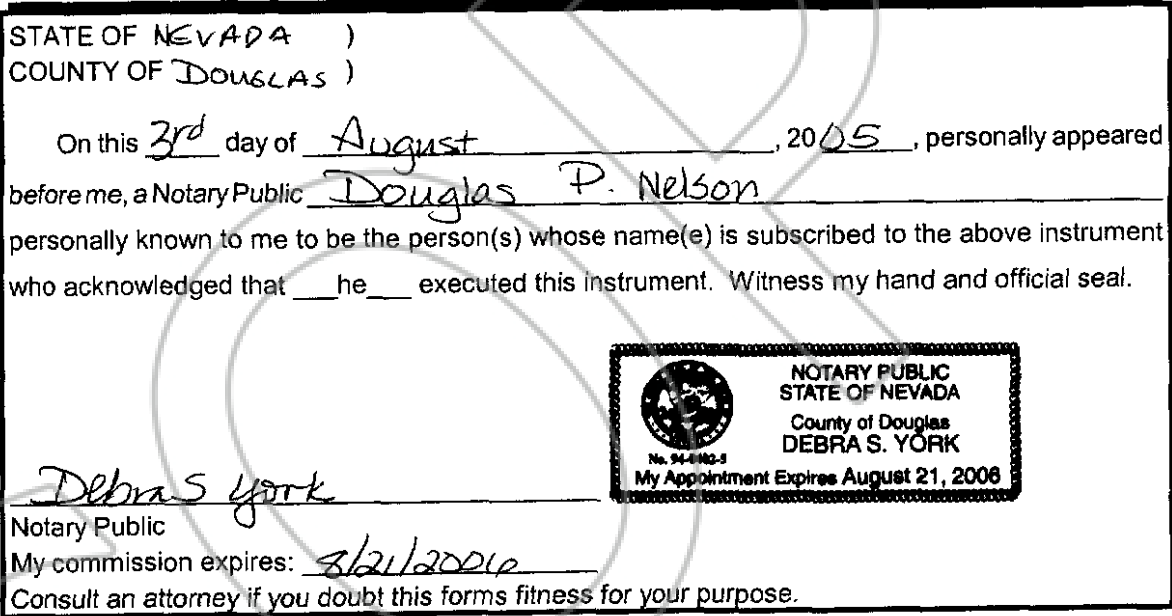 STATE OF NEVADA )
COUNTY OF DOUGLAS )
On this 3rd day of August , 2005 , personally appeared
before me, a Notary Public Douglas P. Nelson
personally known to me to be the person(s) whose name(e) is subscribed to the above instrument
who acknowledged that ___he___ executed this instrument. Witness my hand and official seal.
NOTARY PUBLIC
STATE OF NEVADA
County of Douglas
DEBRA S. YORK
No.
My Appointment Expires August 21, 2006
Debra S York
Notary Public
My commission expires: 8/21/2006
Consult an attorney if you doubt this forms fitness for your purpose.